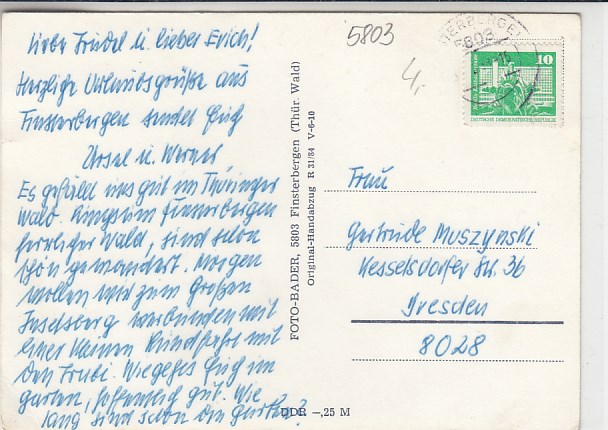 Liebe Friedel u. lieber Erich!
Herzliche Urlaubsgrüße aus
Finsterbergen sendet Euch
Ursel u. Werner
Es gefällt uns gut im Thüringer
Wald. Ringsum Finsterbergen
herrlicher Wald, sind schon
schön gewandert. Morgen
wollen wir zum Großen
Inselsberg verbunden mit
einer kleinen Rundfahrt mit
den Wie geht's Euch im
Garten, hoffentlich gut. Wie
lang sind schon die Gurken?
DDR –,25 M
FOTO-BADER, 5803 Finsterbergen (Thür. Wald)
Original-Handabzug R 31/84 V-6-10
5803
4,-
FINSTERBERGEN
5803
10
DEUTSCHE DEMOKRATISCHE REPUBLIK
Frau
Gertrude Muszynski
Kesselsdorfer Str. 36
Dresden
8028